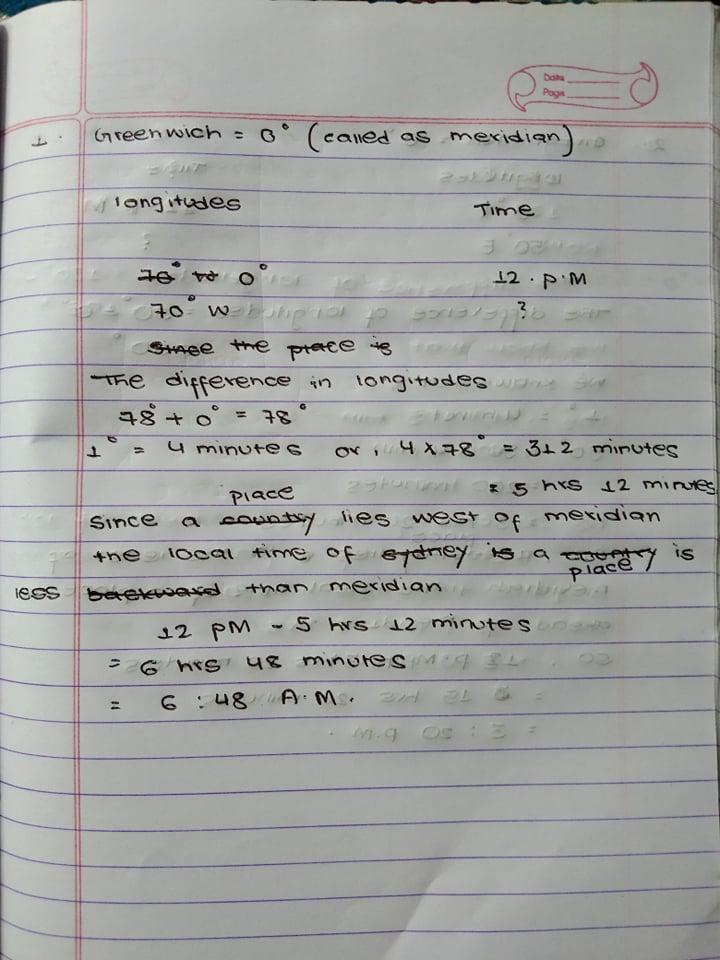 Date
Page
1. Greenwich = 0° (called as meridian)
longitudes Time
70° W 0° 12. P.M
70° W ?
Since the place is
The difference in longitudes
78° + 0° = 78°
1° = 4 minutes or, 4 x 78° = 312 minutes
= 5 hrs 12 minutes
place
Since a country lies west of meridian
the local time of sydney is a country is
place
less backward than meridian
12 PM - 5 hrs 12 minutes
= 6 hrs 48 minutes
= 6 : 48 A.M.